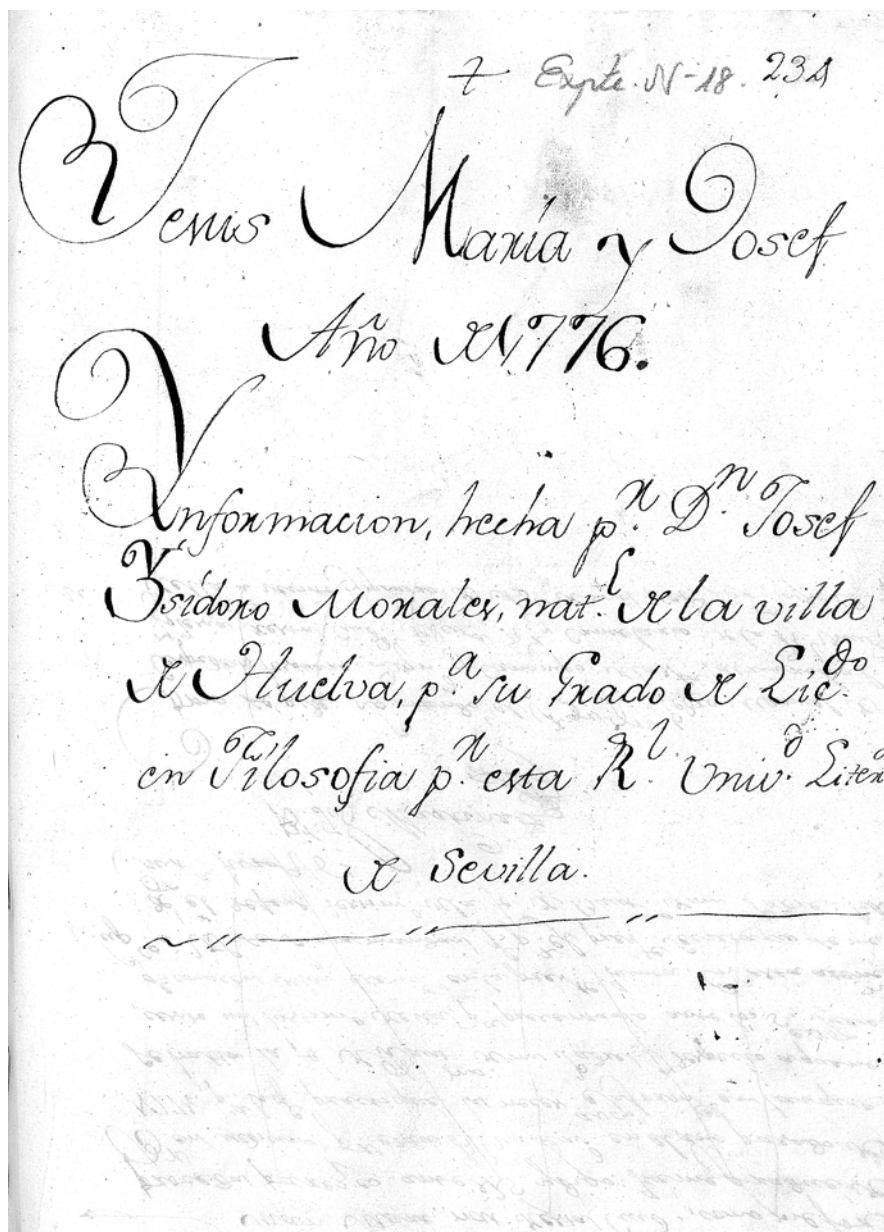 7 Expte. N-18. 234
Jesus María y Josef
Año de 1776.
Ynformacion, hecha p.r D.n Josef
Ysídoro Morales, nat.l de la villa
de Huelva, p.a su Grado de Lic.do
en Filosofia p.r esta R.l Univ.d Liter
de Sevilla.